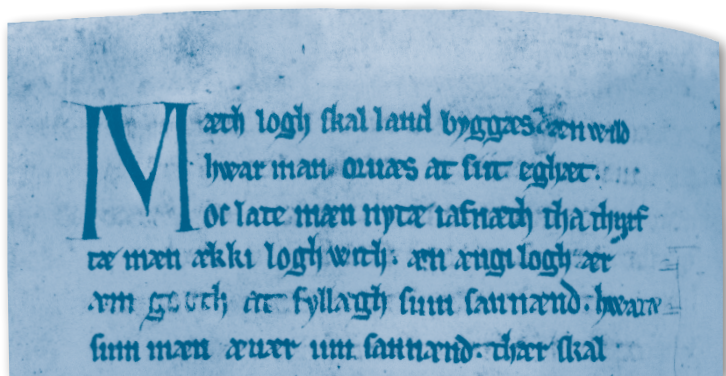 Mæth logh skal land byggæs. æn wild
hwar man oruæs at sint eghæt.
oc late mæn nytæ iafnæth tha thyrf
tæ mæn ækki logh with. æn ængi logh ær
æm gooth at fyllægh sum sannænd. hwaræ
sum mæn æuær um sannænd. thær skal